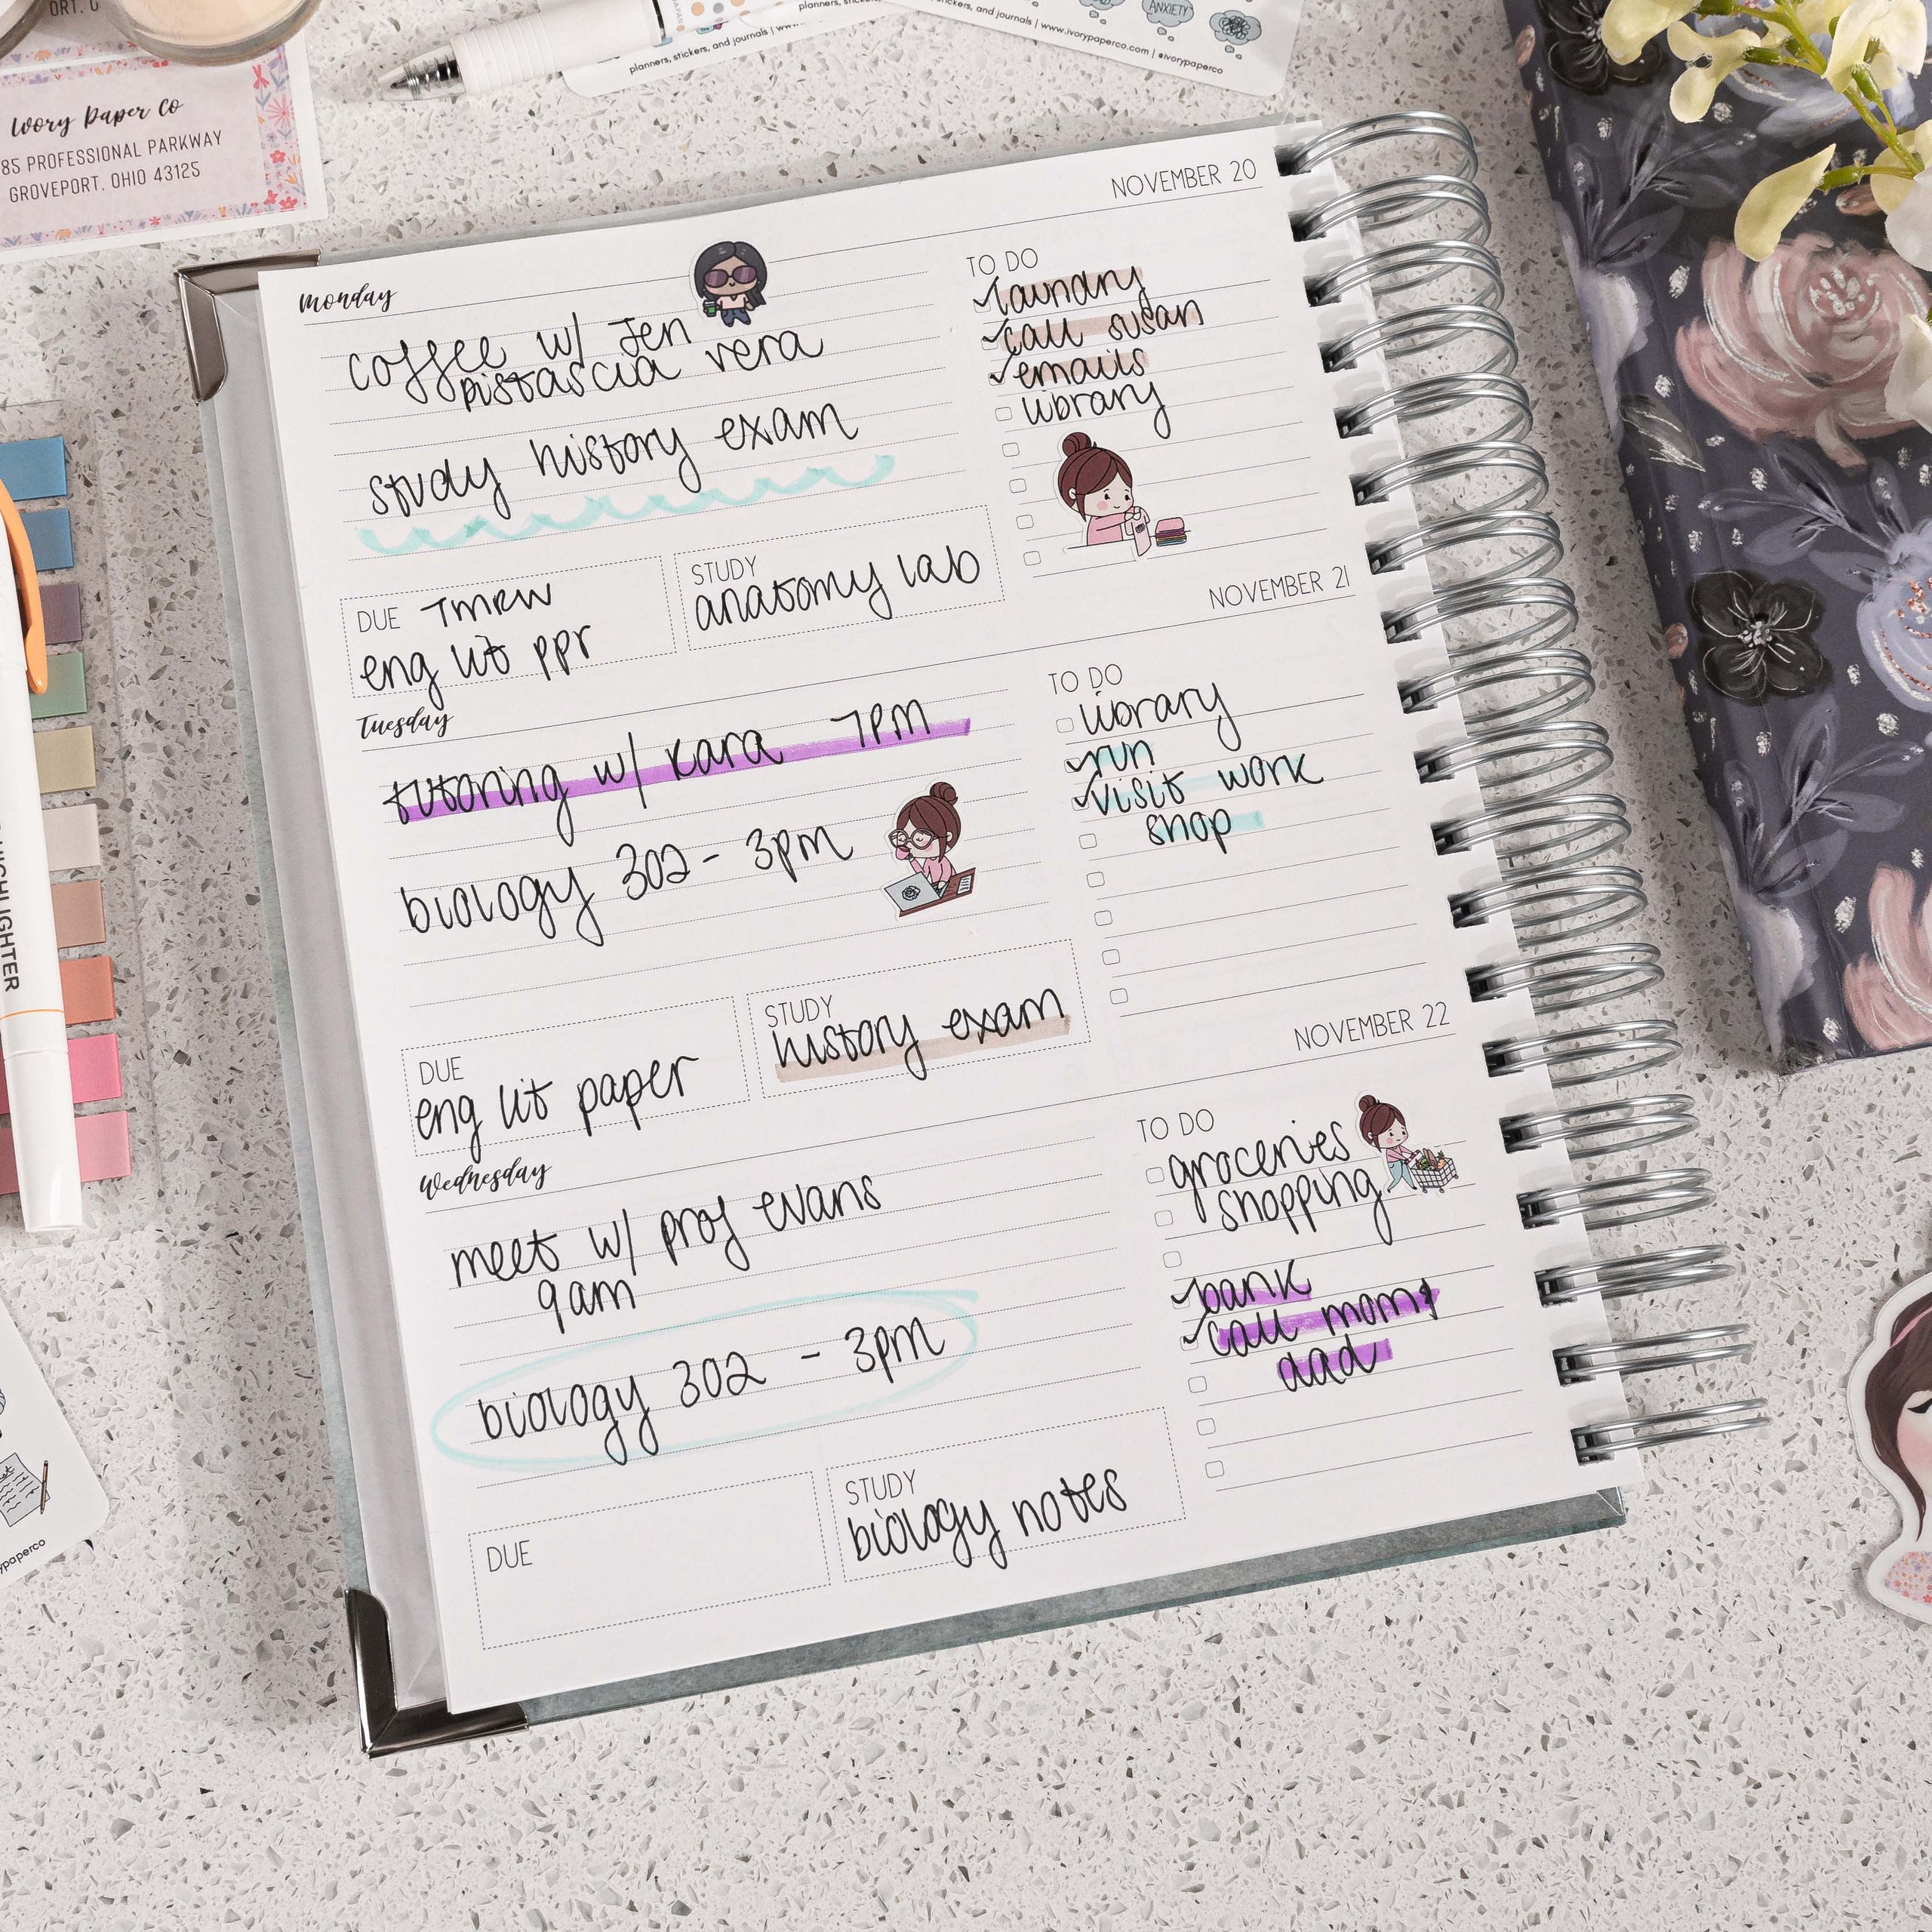 ORT, O
Ivory Paper Co
85 PROFESSIONAL PARKWAY
GROVEPORT, OHIO 43125
planners, stickers, and journals | www.
planners, stick
ickers, and journals | www.ivorypaperco.com | @ivorypaperco
ANXIETY
NOVEMBER 20
monday
coffee w/ Jen
pistascia vera
study history exam
DUE TMRW
eng lit ppr
STUDY
anatomy lab
TO DO
laundry
call susan
emails
library
NOVEMBER 21
Tuesday
tutoring w/ Kara 7PM
biology 302 - 3pm
DUE
eng lit paper
STUDY
history exam
TO DO
library
run
visit work
shop
NOVEMBER 22
Wednesday
meet w/ prof evans
9am
biology 302 - 3pm
DUE
STUDY
biology notes
TO DO
groceries
shopping
bank
call mom &
dad
HIGHLIGHTER
ypaperco